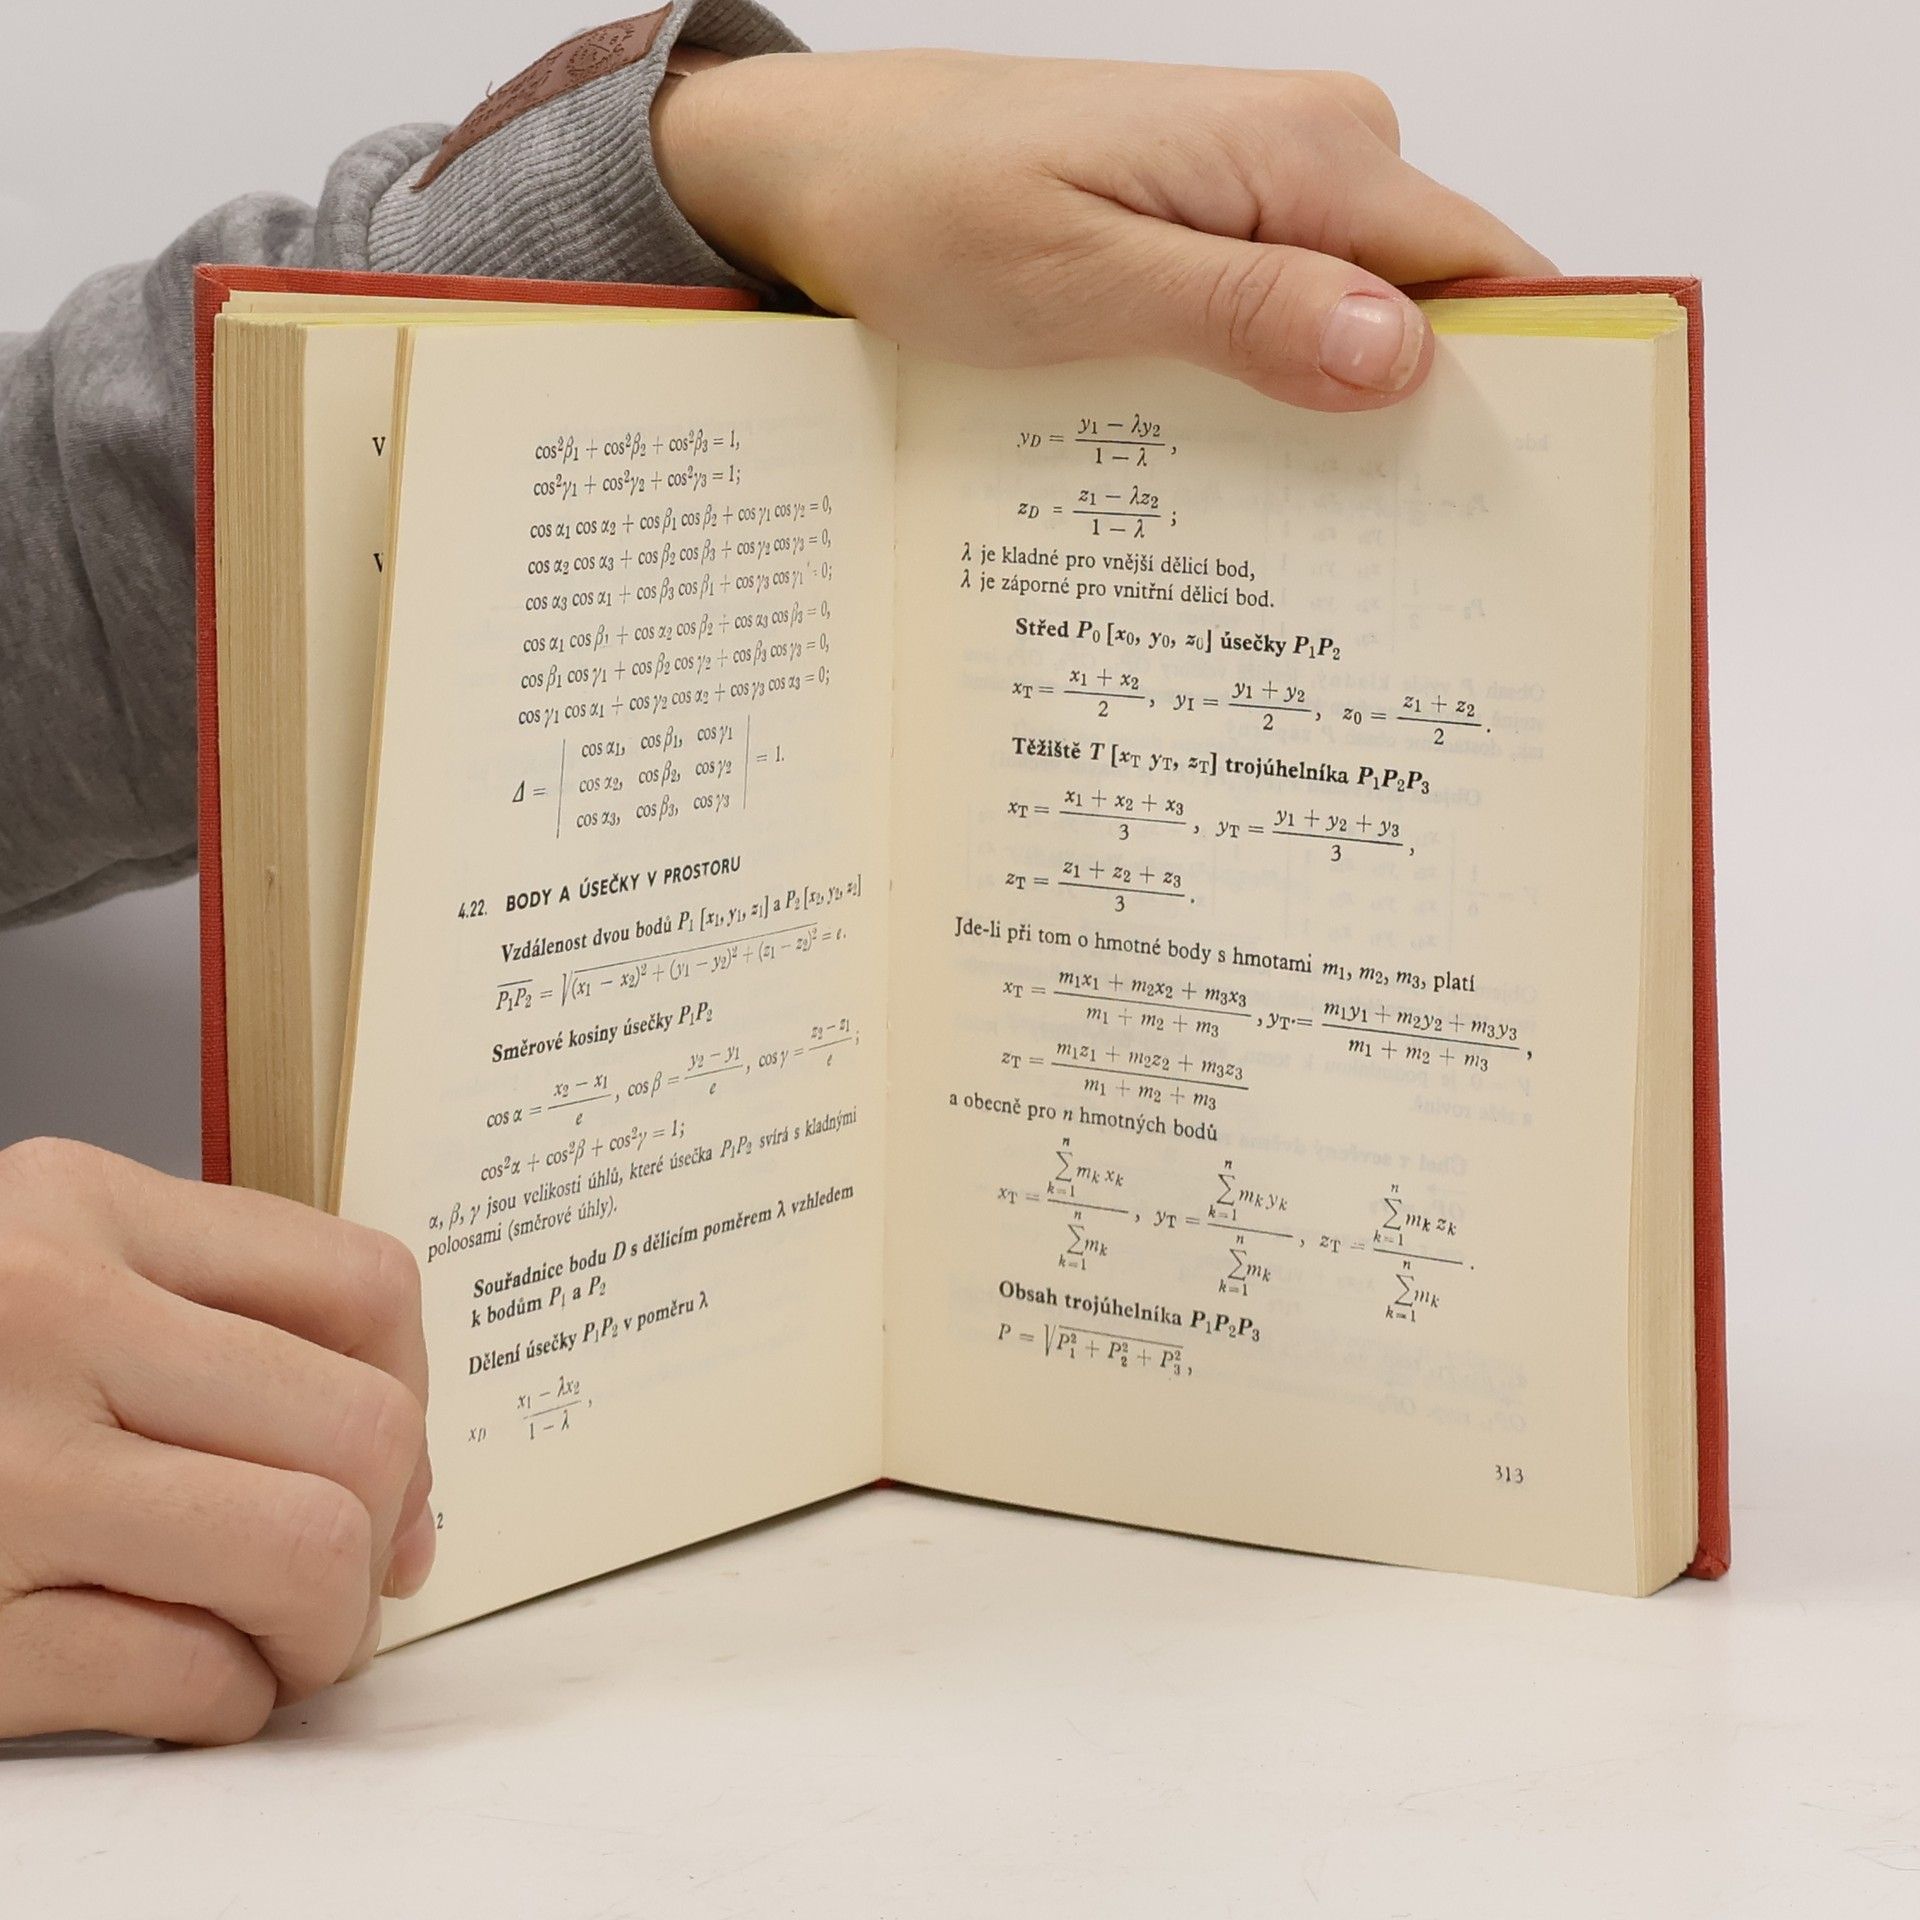 V
V
cos²β₁ + cos²β₂ + cos²β₃ = 1,
cos²γ₁ + cos²γ₂ + cos²γ₃ = 1;
cos α₁ cos α₂ + cos β₁ cos β₂ + cos γ₁ cos γ₂ = 0,
cos α₂ cos α₃ + cos β₂ cos β₃ + cos γ₂ cos γ₃ = 0,
cos α₃ cos α₁ + cos β₃ cos β₁ + cos γ₃ cos γ₁ = 0;
cos α₁ cos β₁ + cos α₂ cos β₂ + cos α₃ cos β₃ = 0,
cos β₁ cos γ₁ + cos β₂ cos γ₂ + cos β₃ cos γ₃ = 0,
cos γ₁ cos α₁ + cos γ₂ cos α₂ + cos γ₃ cos α₃ = 0;
cos α₁, cos β₁, cos γ₁
Δ = | cos α₂, cos β₂, cos γ₂ | = 1.
cos α₃, cos β₃, cos γ₃
4.22. BODY A ÚSEČKY V PROSTORU
Vzdálenost dvou bodů P₁ [x₁, y₁, z₁] a P₂ [x₂, y₂, z₂]
P₁P₂ = √(x₁ − x₂)² + (y₁ − y₂)² + (z₁ − z₂)² = e.
Směrové kosiny úsečky P₁P₂
cos α = (x₂ − x₁)/e, cos β = (y₂ − y₁)/e, cos γ = (z₂ − z₁)/e;
cos²α + cos²β + cos²γ = 1;
α, β, γ jsou velikosti úhlů, které úsečka P₁P₂ svírá s kladnými
poloosami (směrové úhly).
Souřadnice bodu D s dělicím poměrem λ vzhledem
k bodům P₁ a P₂
Dělení úsečky P₁P₂ v poměru λ
x_D (x₁ − λx₂)/(1 − λ),
2
y_D = (y₁ − λy₂)/(1 − λ),
z_D = (z₁ − λz₂)/(1 − λ);
λ je kladné pro vnější dělicí bod,
λ je záporné pro vnitřní dělicí bod.
Střed P₀ [x₀, y₀, z₀] úsečky P₁P₂
x_T = (x₁ + x₂)/2, y_I = (y₁ + y₂)/2, z₀ = (z₁ + z₂)/2.
Těžiště T [x_T y_T, z_T] trojúhelníka P₁P₂P₃
x_T = (x₁ + x₂ + x₃)/3, y_T = (y₁ + y₂ + y₃)/3,
z_T = (z₁ + z₂ + z₃)/3.
Jde-li při tom o hmotné body s hmotami m₁, m₂, m₃, platí
x_T = (m₁x₁ + m₂x₂ + m₃x₃)/(m₁ + m₂ + m₃), y_T = (m₁y₁ + m₂y₂ + m₃y₃)/(m₁ + m₂ + m₃),
z_T = (m₁z₁ + m₂z₂ + m₃z₃)/(m₁ + m₂ + m₃)
a obecně pro n hmotných bodů
x_T = (∑_{k=1}^{n} m_k x_k)/(∑_{k=1}^{n} m_k), y_T = (∑_{k=1}^{n} m_k y_k)/(∑_{k=1}^{n} m_k), z_T = (∑_{k=1}^{n} m_k z_k)/(∑_{k=1}^{n} m_k).
Obsah trojúhelníka P₁P₂P₃
P = √P₁² + P₂² + P₃²,
313